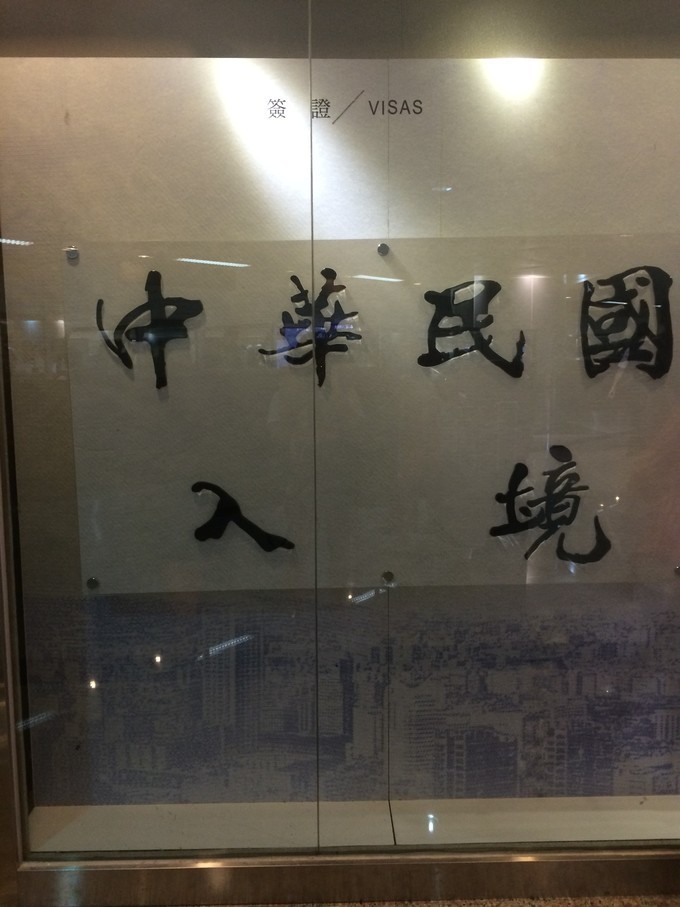 簽證／VISAS
中華民國
入境